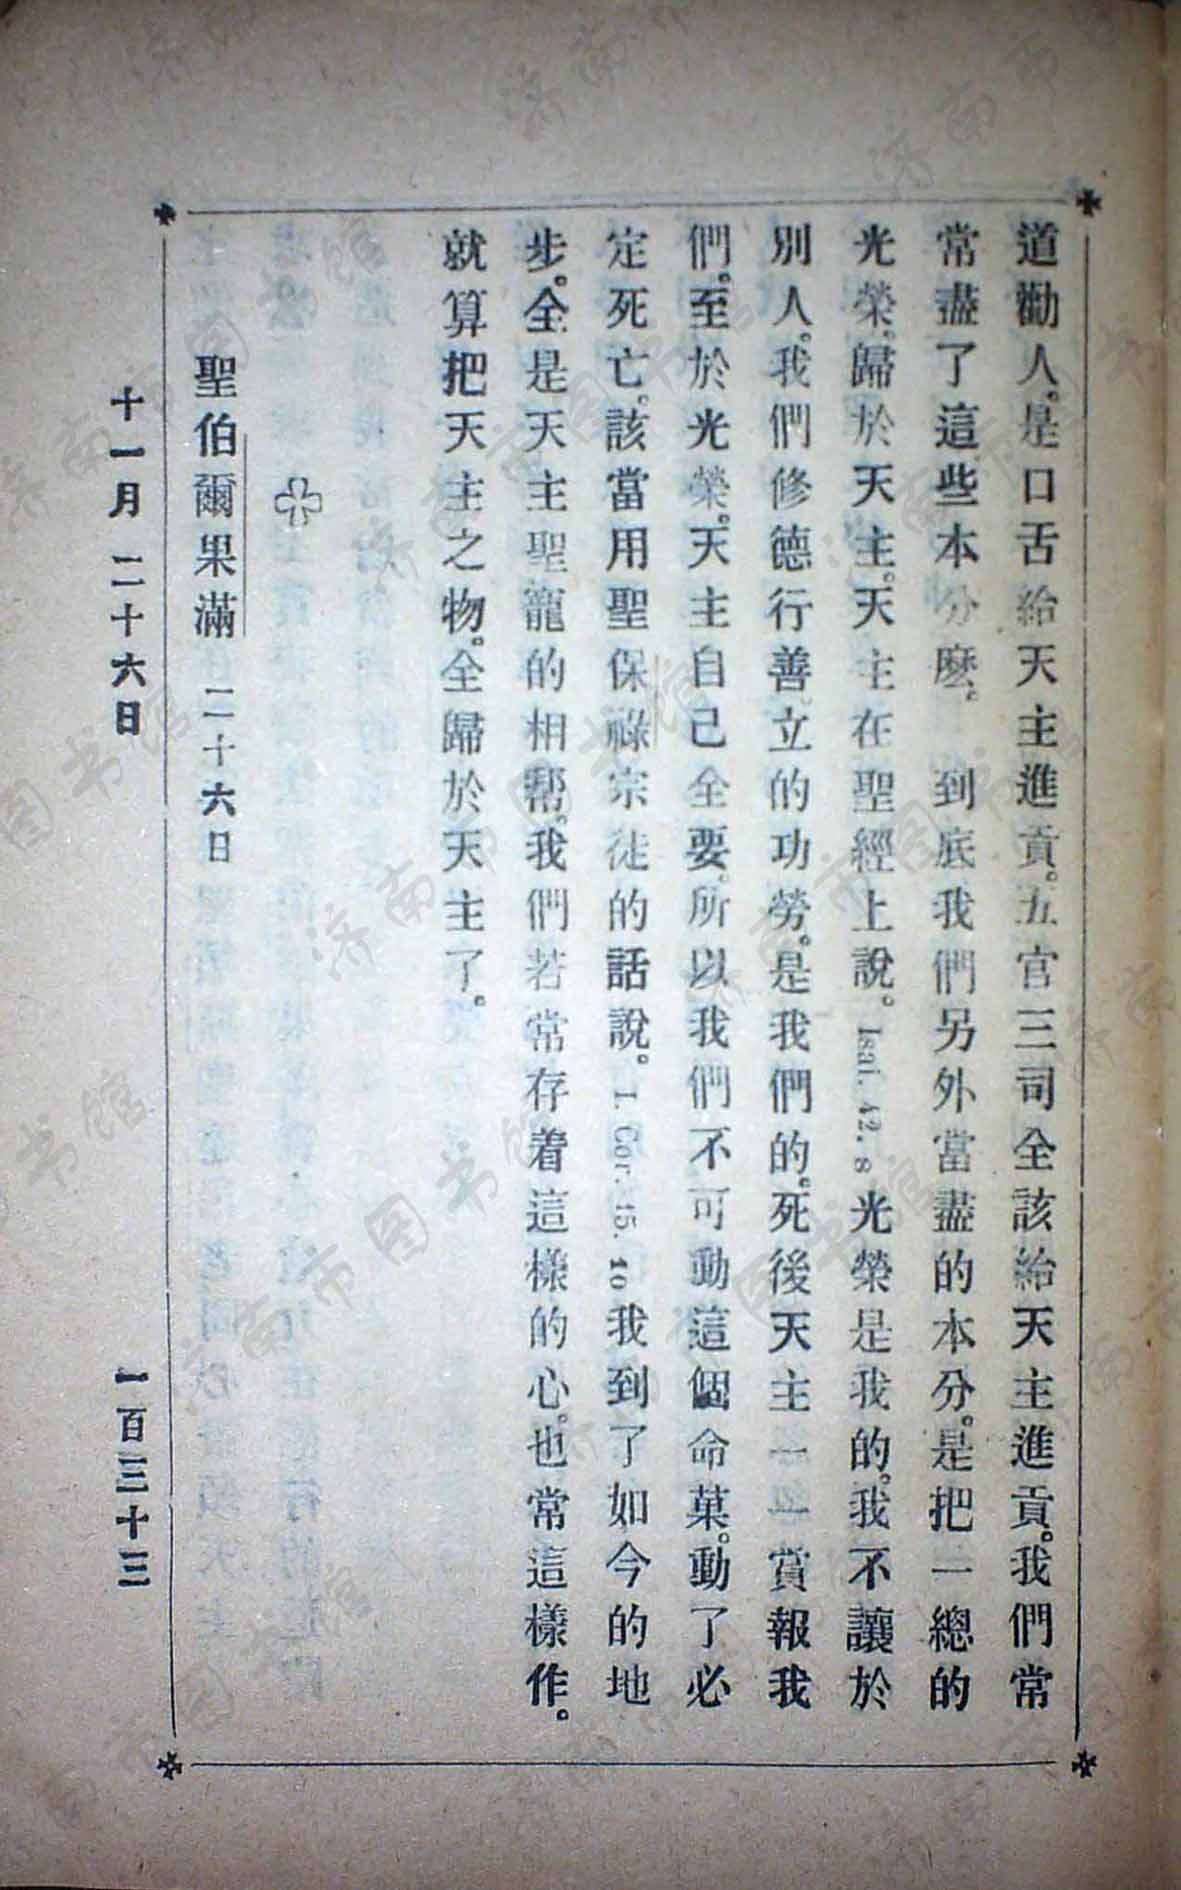 道勸人。是口舌給天主進貢。五官三司全該給天主進貢。我們常
常盡了這些本分麽。　到底我們另外當盡的本分。是把一總的
光榮。歸於天主。天主在聖經上說。Isai. 42. 8 光榮是我的。我不讓於
別人。我們修德行善立的功勞。是我們的。死後天主一一賞報我
們。至於光榮。天主自己全要。所以我們不可動這個命菓。動了必
定死亡。該當用聖保祿宗徒的話說。1. Cor. 15. 10 我到了如今的地
步。全是天主聖寵的相幫。我們若常存着這樣的心。也常這樣作。
就算把天主之物。全歸於天主了。
聖伯爾果滿　二十六日
十一月二十六日　一百三十三
济南市图书馆